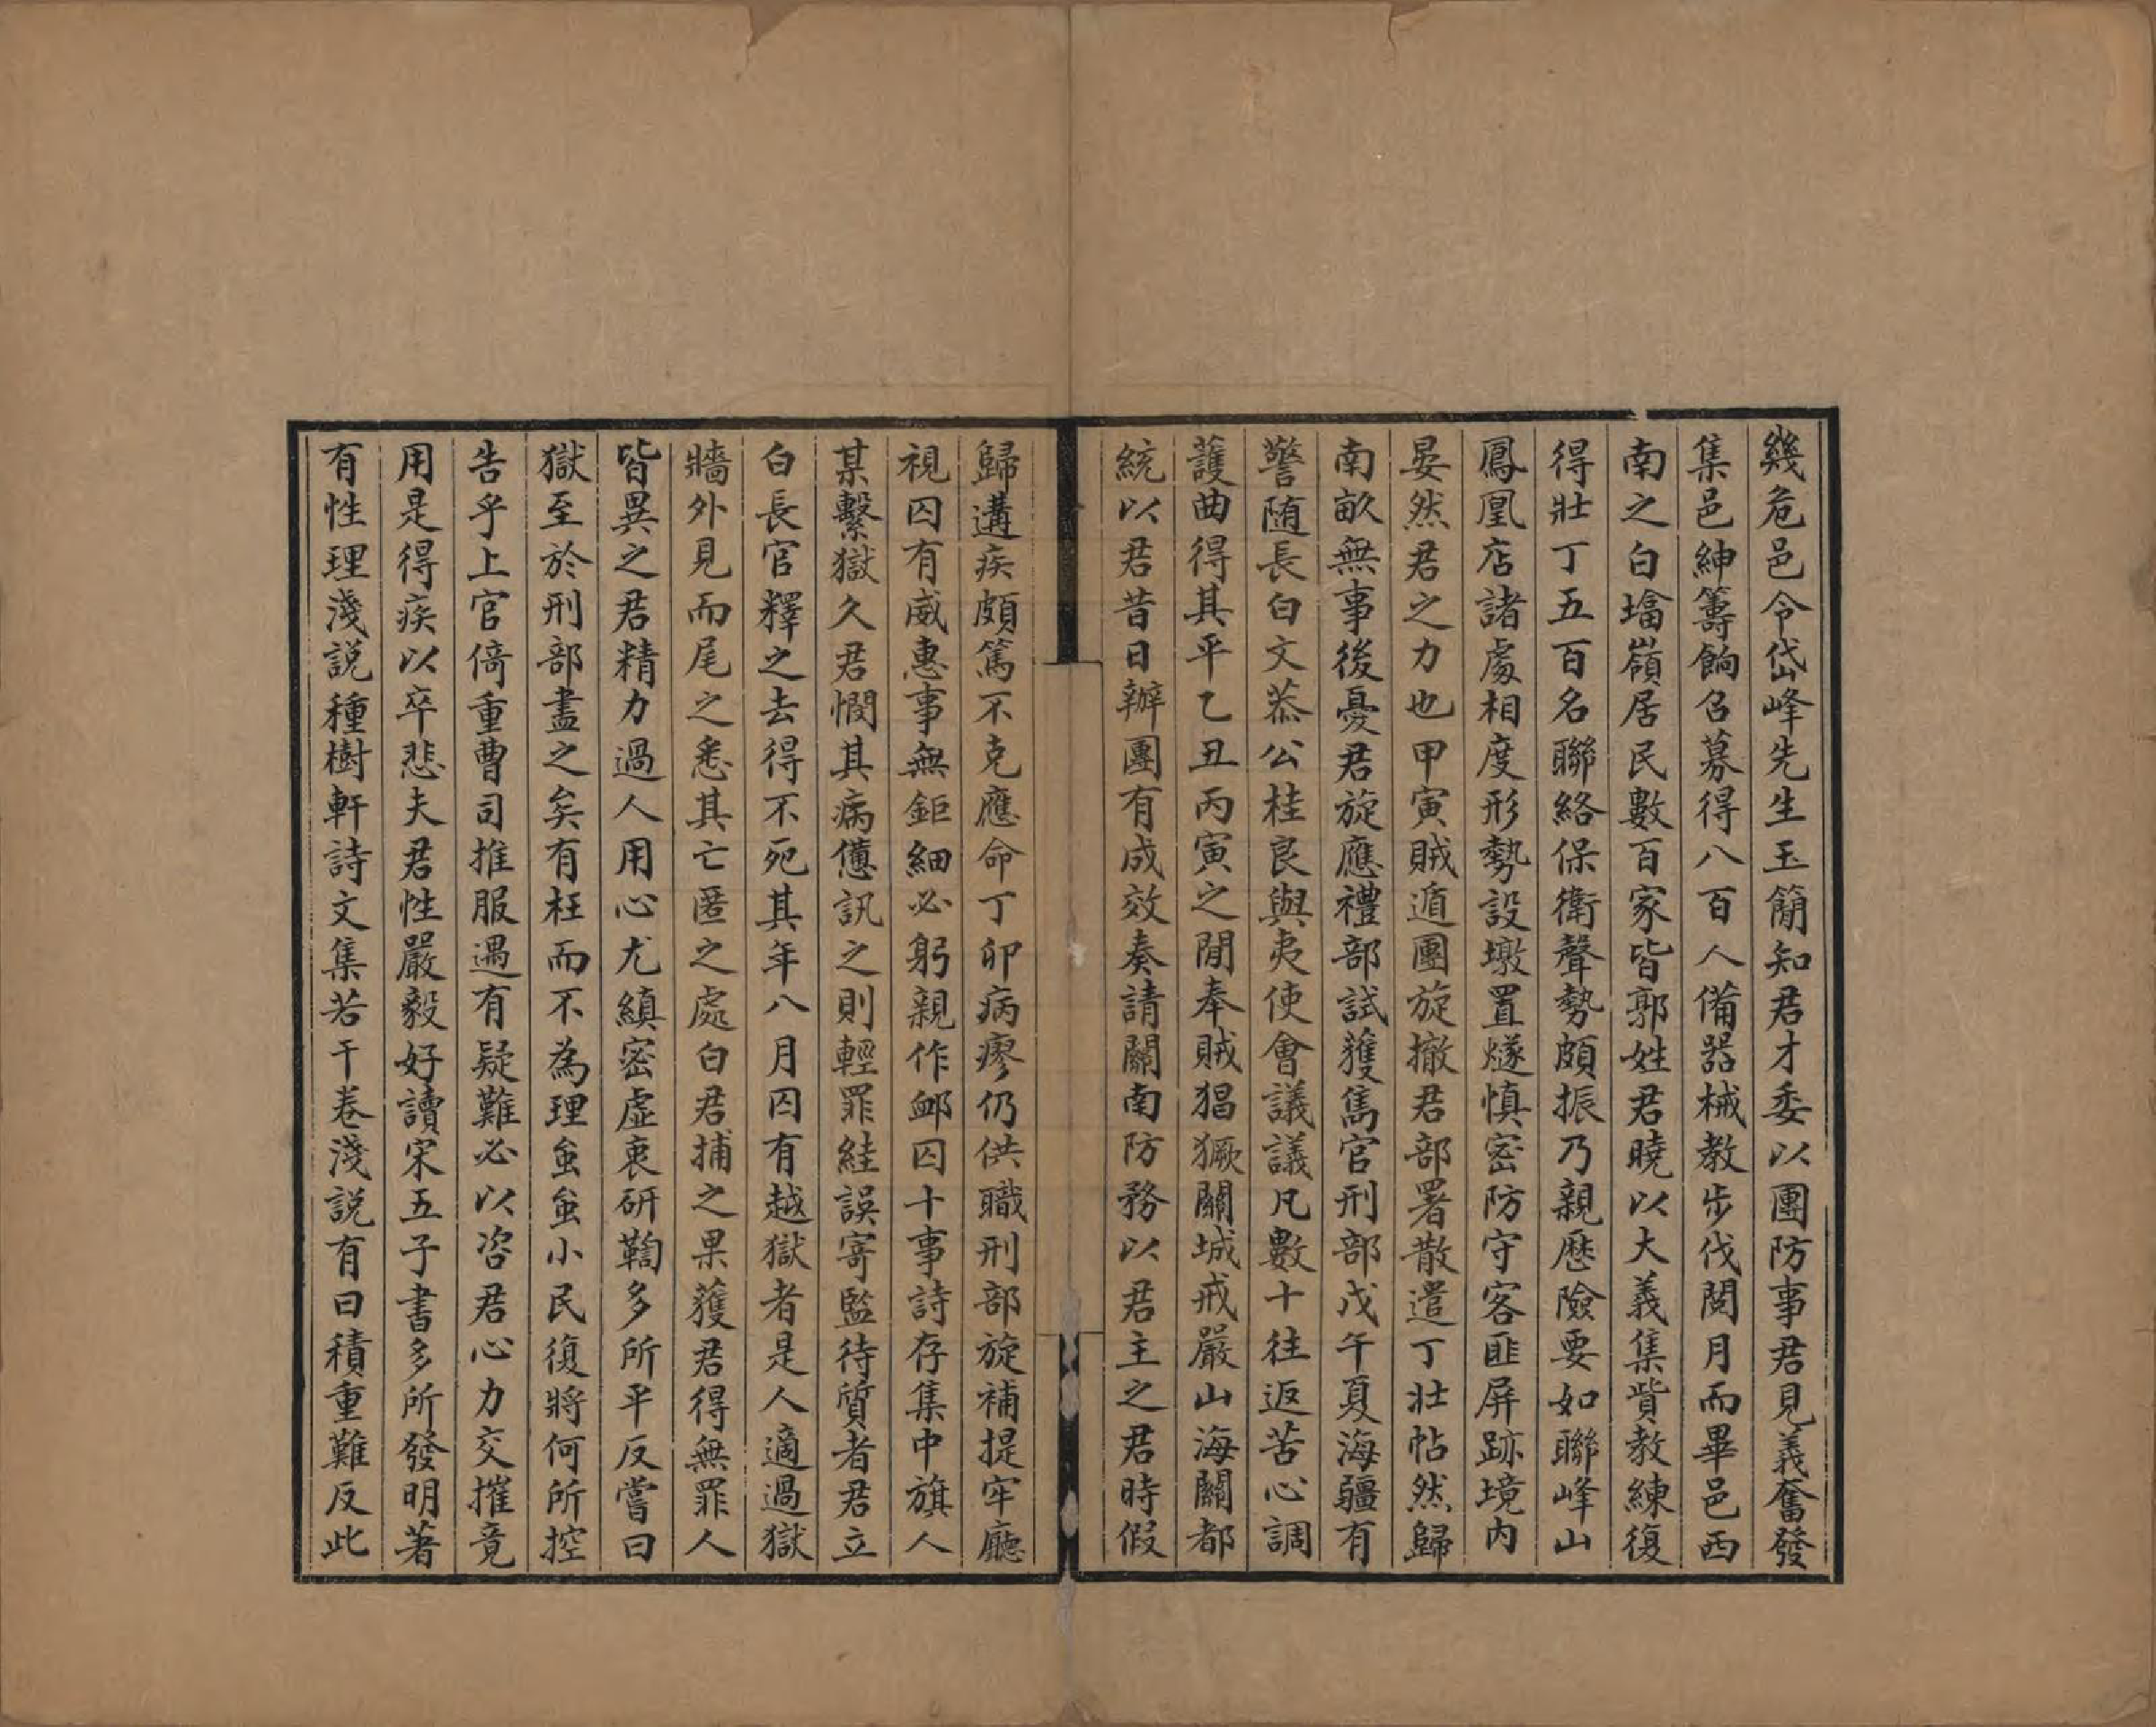 幾危邑令岱峰先生玉簡知君才委以團防事君見義奮發
集邑紳籌餉召募得八百人備器械教步伐閱月而畢邑西
南之白墖嶺居民數百家皆郭姓君曉以大義集貲教練復
得壯丁五百名聯絡保衛聲勢頗振乃親歷險要如聯峰山
鳳凰店諸處相度形勢設墩置燧慎密防守客匪屏跡境内
晏然君之力也甲寅賊遁團旋撤君部署散遣丁壯帖然歸
南畝無事後憂君旋應禮部試獲雋官刑部戊午夏海疆有
警随長白文恭公桂良與夷使會議議凡數十往返苦心調
護曲得其平乙丑丙寅之閒奉賊猖獗關城戒嚴山海關都
統以君昔日辦團有成效奏請關南防務以君主之君時假
歸遘疾頗篤不克應命丁卯病瘳仍供職刑部旋補提牢廳
視囚有威惠事無鉅細必躬親作䘏囚十事詩存集中旗人
某繫獄久君憫其病憊訊之則輕罪絓誤寄監待質者君立
白長官釋之去得不死其年八月囚有越獄者是人適過獄
牆外見而尾之悉其亡匿之處白君捕之果獲君得無罪人
皆異之君精力過人用心尤縝密虛衷研鞫多所平反嘗曰
獄至於刑部盡之矣有枉而不為理蚩蚩小民復將何所控
告乎上官倚重曹司推服遇有疑難必以咨君心力交摧竟
用是得疾以卒悲夫君性嚴毅好讀宋五子書多所發明著
有性理淺説種樹軒詩文集若干卷淺説有曰積重難反此